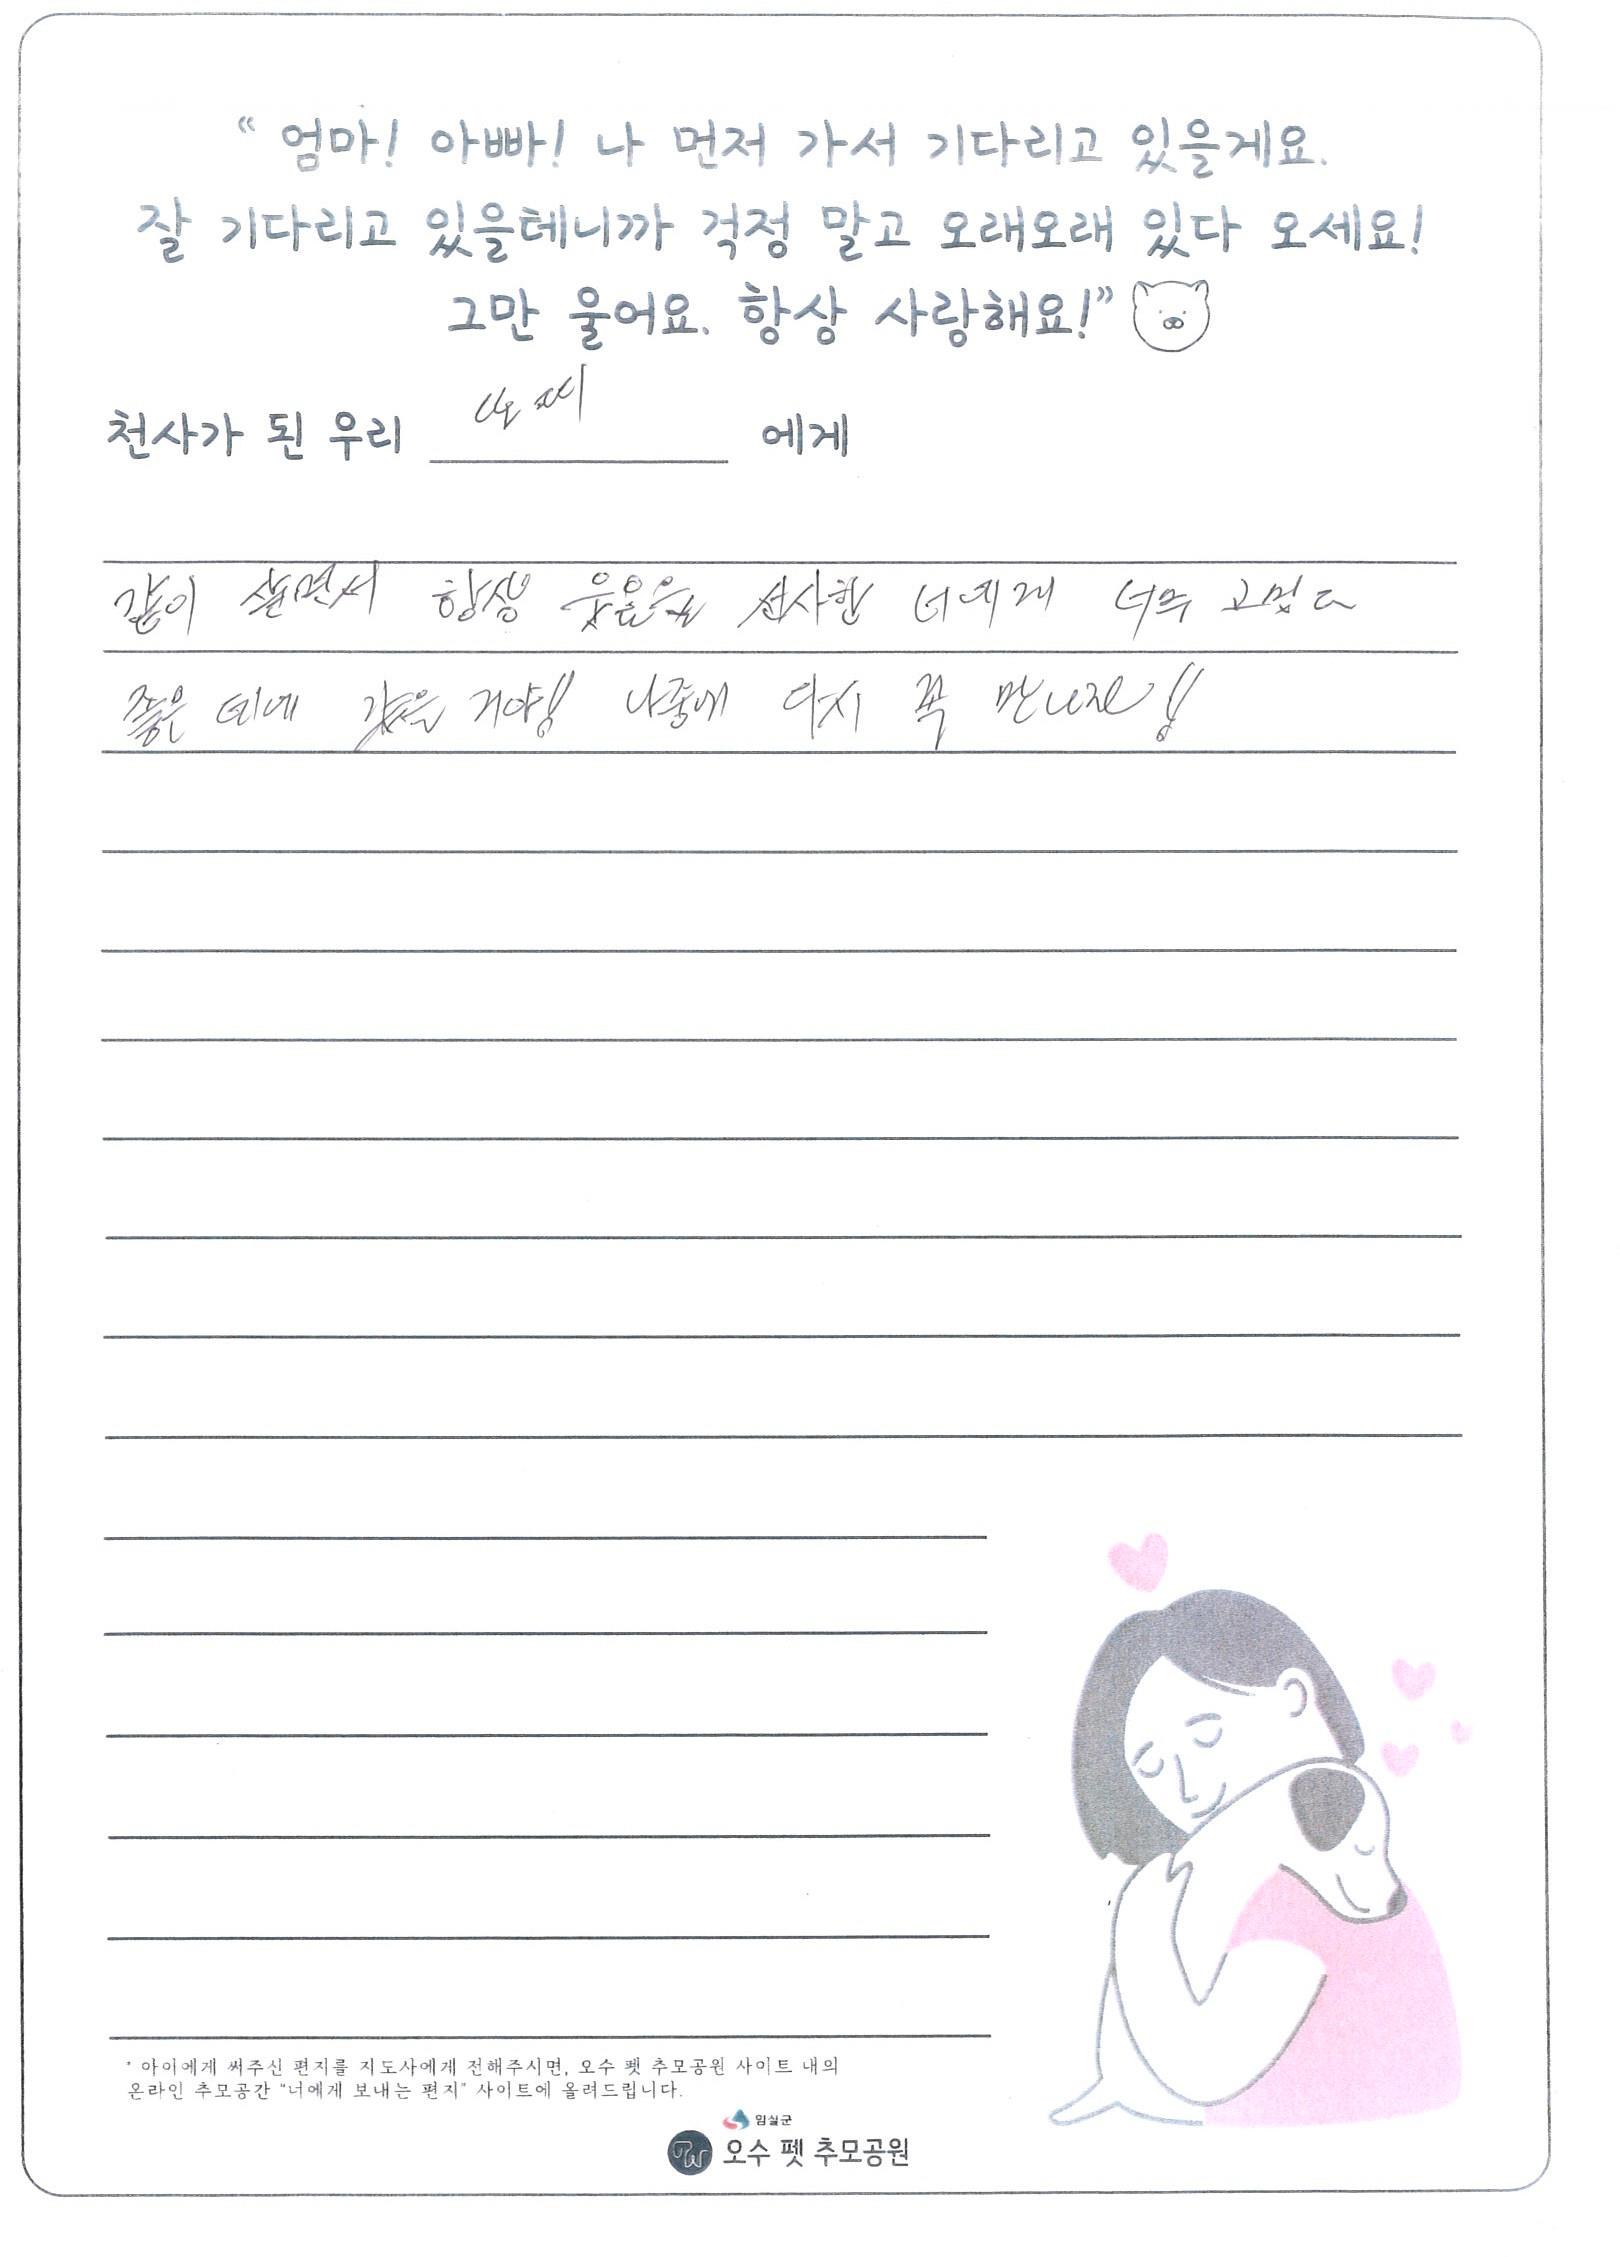 “ 엄마! 아빠! 나 먼저 가서 기다리고 있을게요.
잘 기다리고 있을테니까 걱정 말고 오래오래 있다 오세요!
그만 울어요. 항상 사랑해요!”
천사가 된 우리 에게
같이 살면서 항상 웃음을 선사한 너에게 너무 고맙다
좋은 데에 갔을 거야!! 나중에 다시 꼭 만나자!!
* 아이에게 써주신 편지를 지도사에게 전해주시면, 오수 펫 추모공원 사이트 내의
온라인 추모공간 “너에게 보내는 편지” 사이트에 올려드립니다.
임실군
오수 펫 추모공원